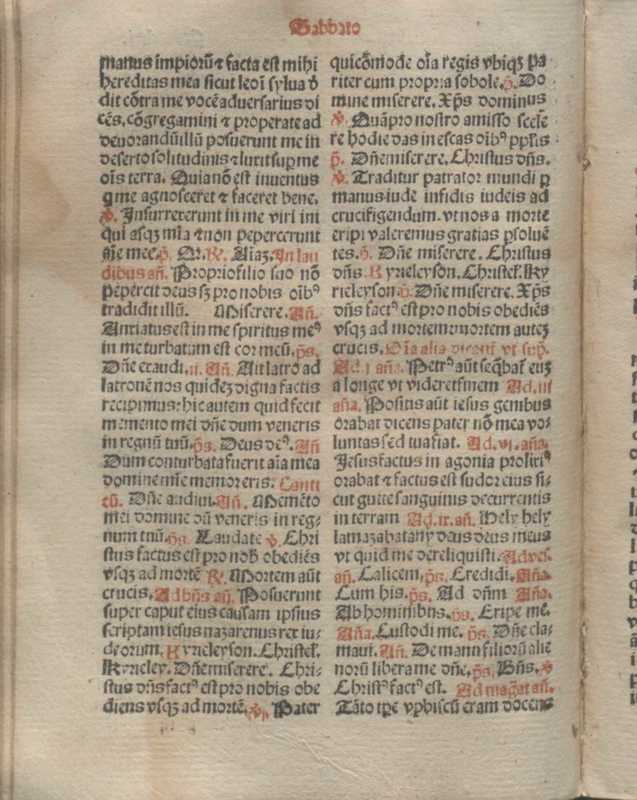 Sabbato
manus impiorũ ⁊ facta est mihi
hereditas mea sicut leoĩ sylua d̃
dit cõtra me vocẽ aduersarius di
cẽs. cõgregamini ⁊ properate ad
deuorandũ illũ posuerunt me in
deserto solitudinis ⁊ luxit sup me
oĩs terra. Quia nõ est inuentus
q̃ me agnosceret ⁊ faceret bene.
℣. Insurrexerunt in me viri ini
qui absqꝫ mĩa ⁊ non pepercerunt
aĩe mee. p̃. Or. ℟. Aĩaꝫ. In lau
dibus añ. Proprio filio suo nõ
pepercit deus sꝫ pro nobis oĩbꝰ
tradidit illũ. Miserere. Añ.
Anxiatus est in me spiritus meꝰ
in me turbatum est cor meũ. p̃s.
Dñe exaudi. ii. Añ. Ait latro ad
latronẽ nos quideꝫ digna factis
recipimus: hic autem quid fecit
memento mei dñe dum veneris
in regnũ tuũ. p̃s. Deus deꝰ. Añ
Dum conturbata fuerit aĩa mea
domine mie memor eris. Canti
cũ. Dñe audiui. Añ. Memẽto
mei domine dũ veneris in reg-
num tuũ. p̃s. Laudate ℣. Chri
stus factus est pro nob̃ obediẽs
vsqꝫ ad mortẽ ℟. Mortem aũt
crucis. Ad bñs añ. Posuerunt
super caput eius causam ipsius
scriptam iesus nazarenus rex iu-
deorum. Kyrieleyson. Christeľ.
Kyrieley. Dñe miserere. Chri-
stus dñs factꝰ est pro nobis obe
diens vsqꝫ ad mortẽ. ℣. Pater
quicõmode oĩa regis vbiqꝫ pa
riter cum propria sobole. p̃. Do
mine miserere. Xp̃s dominus
℣. Qui pro nostro amisso scele
re hodie das in escas oĩbꝰ pp̃lis
p̃. Dñe miserere. Christus dñs.
℣. Traditur patrator mundi ꝑ
manus iude infidis iudeis ad
crucifigendum. vt nos a morte
eripi valeremus gratias ꝑsoluẽ
tes. p̃. Dñe miserere. Christus
dñs. Kyrieleyson. Christeľ. Ky
rieleyson. p̃. Dñe miserere. Xp̃s
dñs factꝰ est pro nobis obediẽs
vsqꝫ ad mortem mortem auteꝫ
crucis. Oĩa alia dicant̃ vt sup̃.
Ad. i aña. Petrꝰ aũt seq̃bat̃ euꝫ
a longe vt videret finem Ad. iii
aña. Positis aũt iesus genibus
orabat dicens pater nõ mea vo-
luntas sed tua fiat. Ad. vi. aña.
Iesus factus in agonia prolixiꝰ
orabat ⁊ factus est sudor eius si-
cut gutte sanguinis decurrentis
in terram Ad. ix. añ. Hely hely
lamazabatany deus deus meus
vt quid me dereliquisti. Ad ves.
añ. Calicem. p̃s. Credidi. Aña.
Cum his. p̃s. Ad dñm Aña.
Ab hominibꝰ. p̃s. Eripe me.
Aña. Custodi me. p̃s. Dñe cla-
maui. Añ. De manu filiorũ alie
norũ libera me dñe. p̃s. Bñs. ℣
Christꝰ factꝰ est. Ad magñt añ.
Tãto tp̃e vobiscũ eram docens